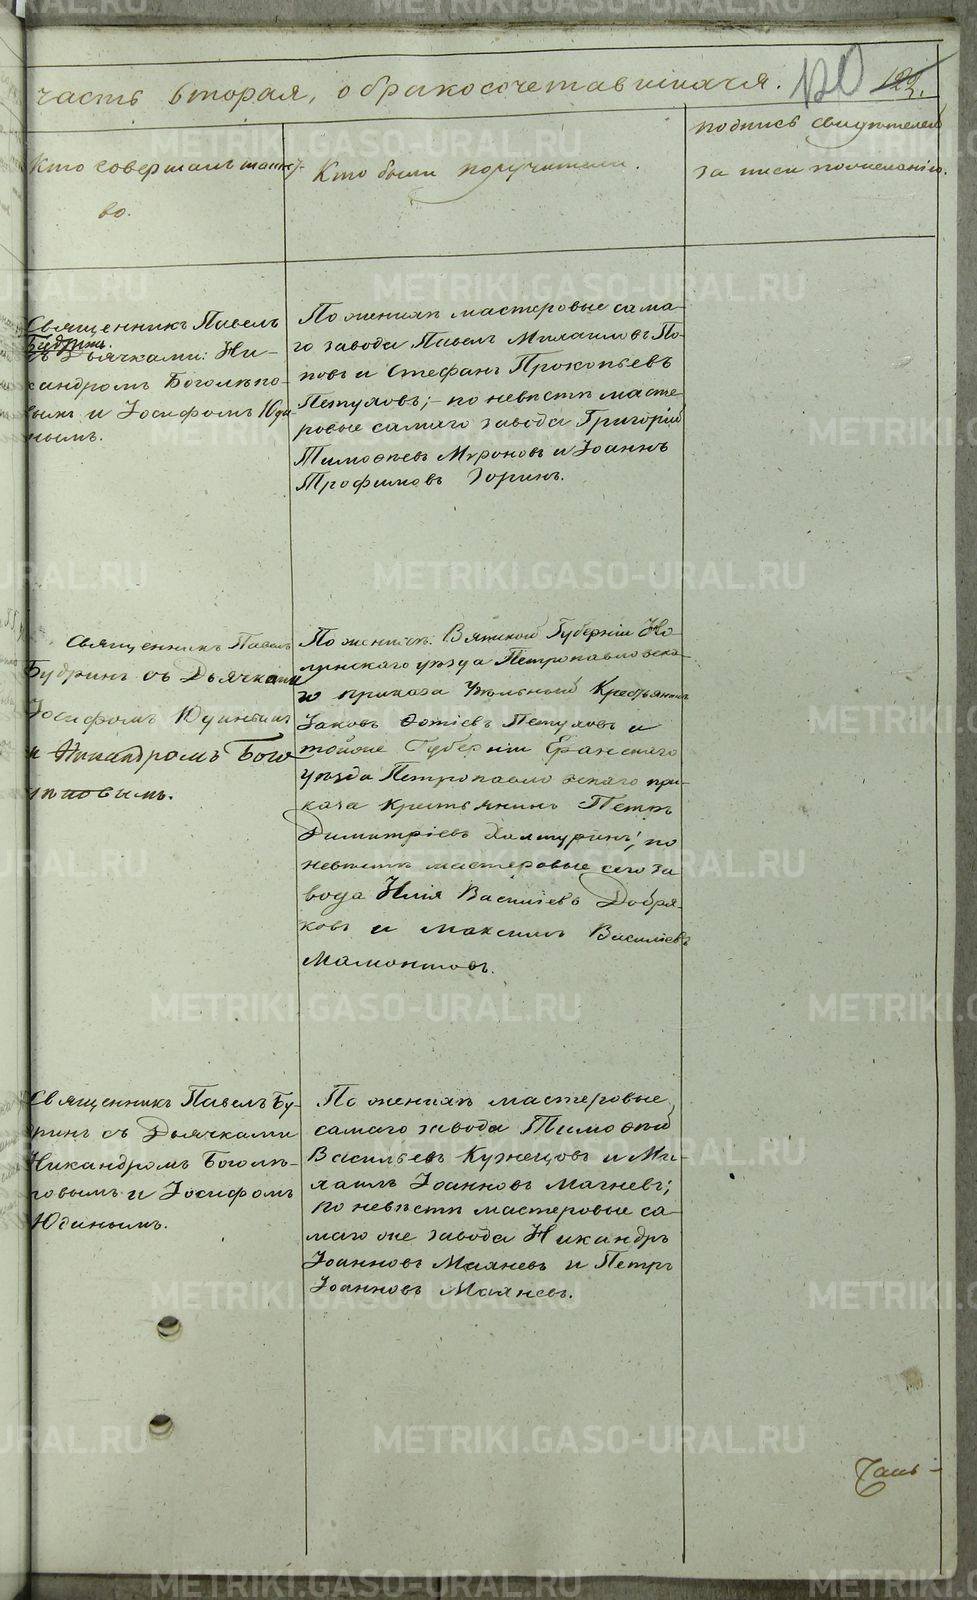 часть вторая, о бракосочетавшихся. 120 123.
Кто совершалъ таинст-
во.
Кто были поручители.
подпись свидѣтелей
записи по желанію.
Священникъ Павелъ
Будринъ.
съ Дьячками: Ни-
кандромъ Боголѣпо-
вымъ и Іосифомъ Юди-
нымъ.
По женихѣ мастеровые сама-
го завода Павелъ Михаиловъ По-
повъ и Стефанъ Прокопьевъ
Петуховъ; - по невѣстѣ масте-
ровые самаго завода Григорій
Тимофеевъ Мироновъ и Іоаннъ
Трофимовъ Зоринъ.
Священникъ Павелъ
Будринъ съ Дьячками
Іосифомъ Юдинымъ
и Никандромъ Бого
лѣповымъ.
По женихѣ: Вятской Губерніи Но-
линскаго уѣзда Петропавловска-
го приказа Удѣльной Крестьянинъ
Іаковъ Фотіевъ Петуховъ и
тойже Губерніи Яранскаго
уѣзда Петропавловскаго при-
каза крестьянинъ Петръ
Димитріевъ Халтуринъ; по
невѣстѣ мастеровые сего за
вода Илія Василіевъ Добря-
ковъ и Максимъ Василіевъ
Мамонтовъ.
Священникъ Павелъ Бу-
дринъ съ Дьячками
Никандромъ Боголѣ-
повымъ и Іосифомъ
Юдинымъ.
По женихѣ мастеровые
самаго завода Тимофей
Васильевъ Кузнецовъ и Ми-
хаилъ Іоанновъ Магневъ;
по невѣстѣ мастеровые са-
маго же завода Никандръ
Іоанновъ Махневъ и Петръ
Іоанновъ Махневъ.
Часъ-
METRIKI.GASO-URAL.RU